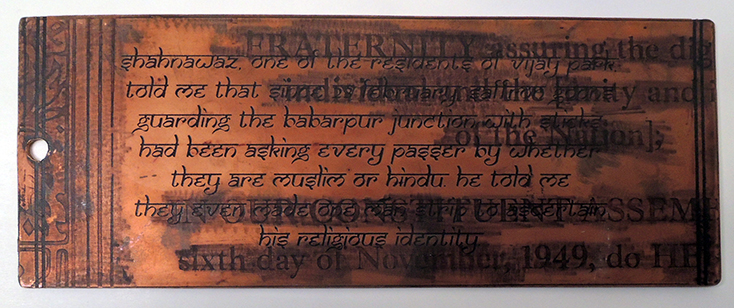 FRATERNITY assuring the dig
shahnawaz, one of the residents of vijay park
told me that february saffron goons
and
guarding the babarpur junction with sticks
of the Nation];
had been asking every passer by whether
they are muslim or hindu. he told me
they even made one man strip to ascertain
CONSTITUENT ASSEM
his religious identity
sixth day of November, 1949, do HE